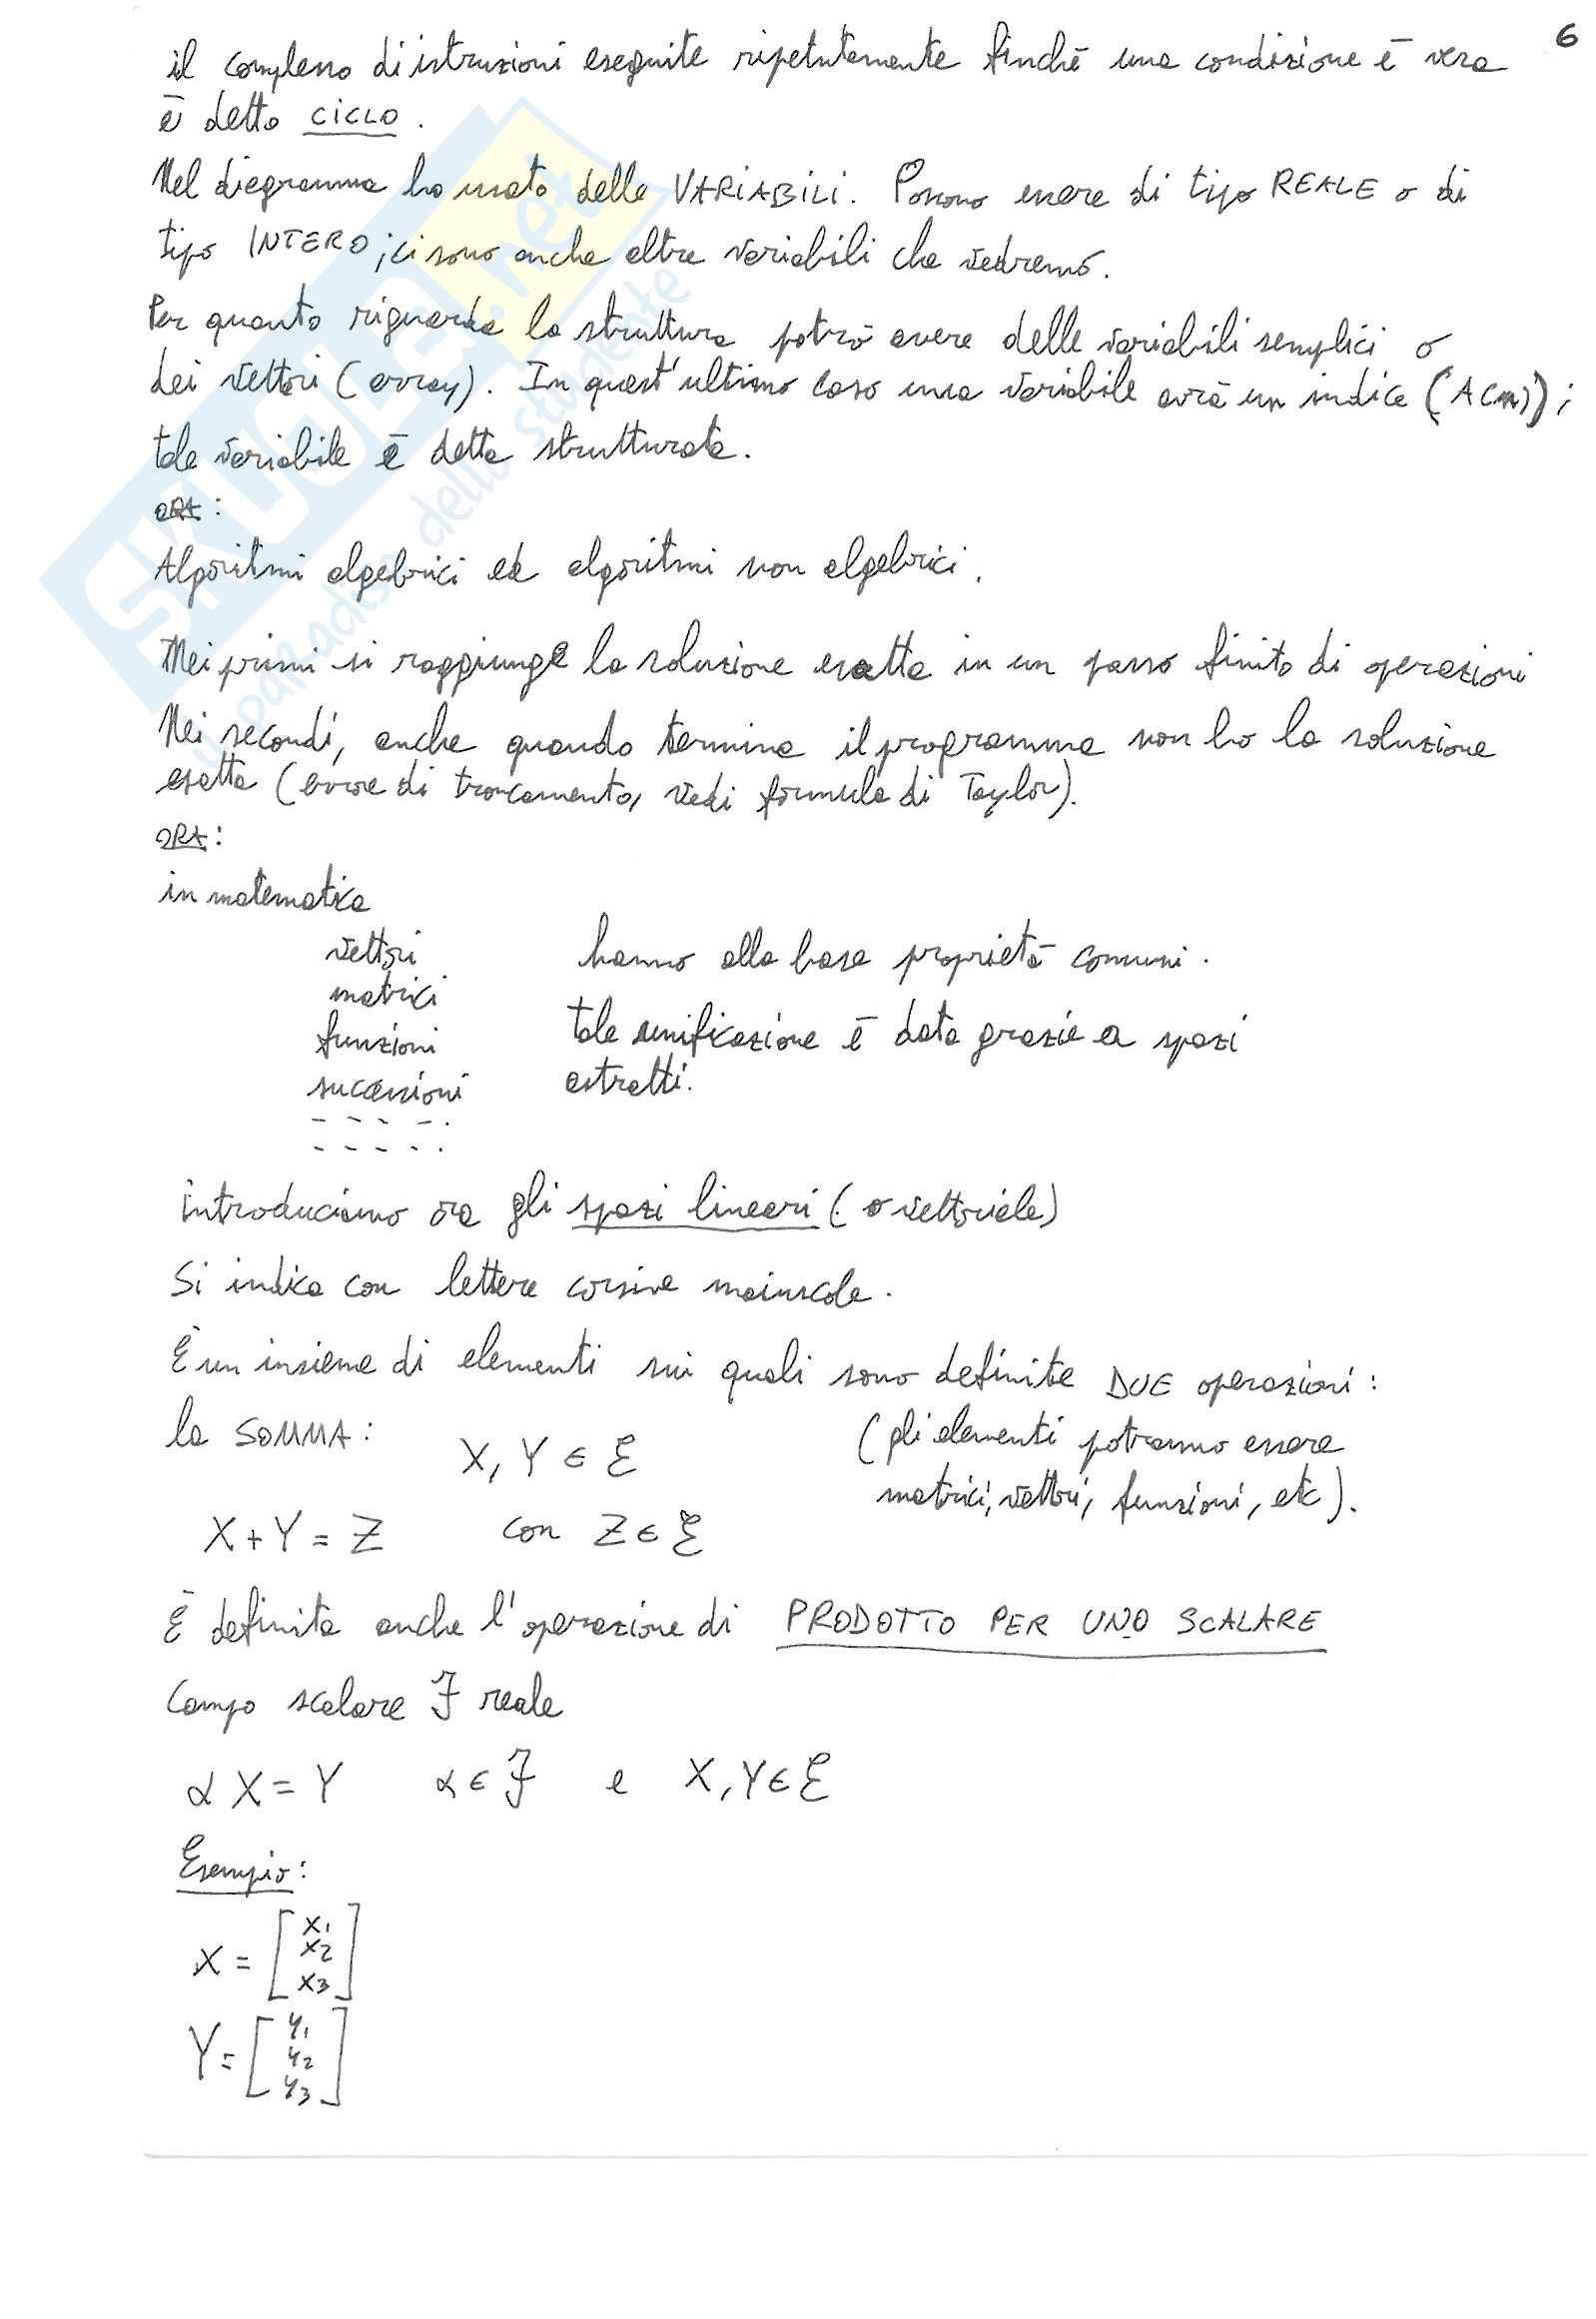 6
il complesso di istruzioni eseguite ripetutamente finchē una condizione ē vera
ē detto CICLO.
Nel diagramma ho usato delle VARIABILI. Possono essere di tipo REALE o di
tipo INTERO; ci sono anche altre variabili che vedremo.
Per quanto riguarda la struttura potrō avere delle variabili semplici o
dei vettori (array). In quest'ultimo caso una variabile avrā un indice (A(n));
tale variabile ē detta strutturata.
ORA:
Algoritmi algebrici ed algoritmi non algebrici.
Nei primi si raggiunge la soluzione esatta in un passo finito di operazioni
Nei secondi, anche quando termina il programma non ho la soluzione
esatta (errore di troncamento, vedi formula di Taylor).
ORA:
in matematica
vettori hanno alla base proprietā comuni.
matrici
funzioni tale unificazione ē data grazie a spazi
successioni astratti.
- - - - .
- - - - .
introduciamo ora gli spazi lineari (o vettoriale)
Si indica con lettere corsive maiuscole.
Ē un insieme di elementi sui quali sono definite DUE operazioni:
la SOMMA: X, Y ∈ ℰ (gli elementi potranno essere
matrici, vettori, funzioni, etc).
X + Y = Z con Z ∈ ℰ
Ē definita anche l'operazione di PRODOTTO PER UNO SCALARE
Campo scalare ℱ reale
α X = Y α ∈ ℱ e X, Y ∈ ℰ
Esempio:
X = [x1
x2
x3]
Y = [y1
y2
y3]
SKUOLA.net
il paradiso dello studente